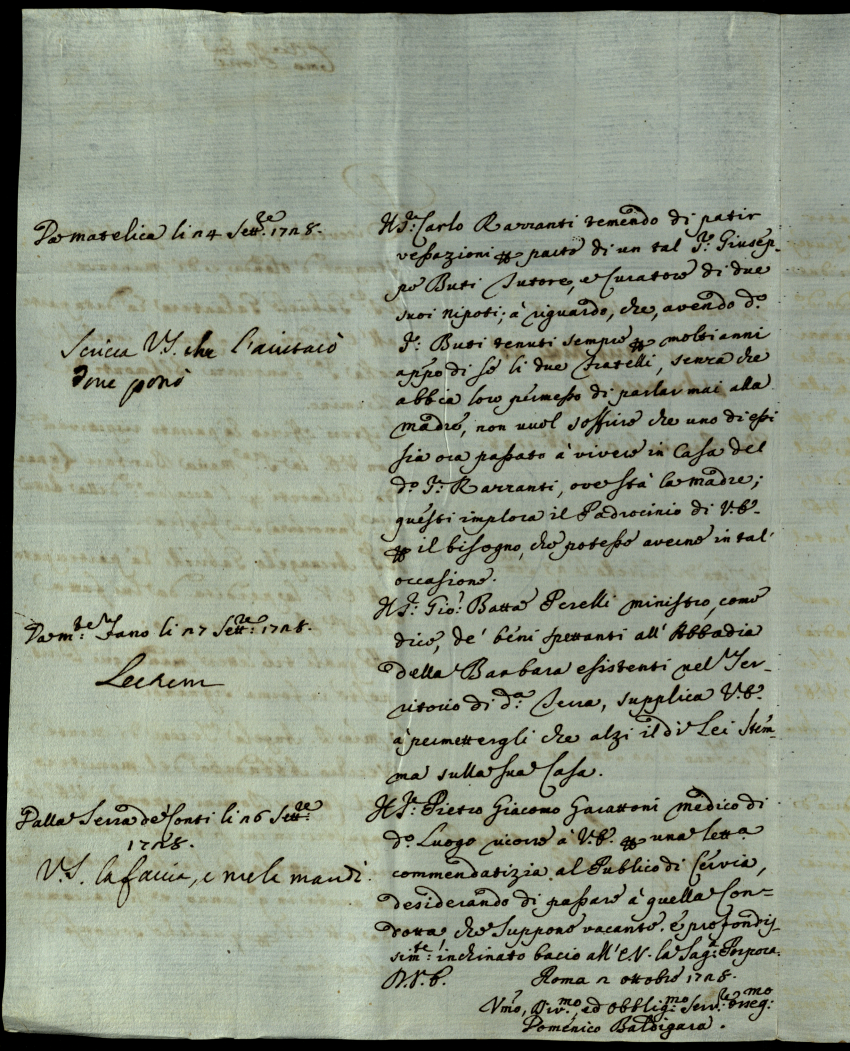 Da Matelica li 24 Sett.re 1728.
Scriva V.S. che l'aiuterò
dove potrò
Il S.r Carlo Razzanti temendo di patir
vessazioni per parte di un tal S.r Giusep-
pe Buti Tutore, e Curatore di due
suoi nipoti; à riguardo, che, avendo d.o
S.r Buti tenuti sempre per molti anni
appo di se li due fratelli, senza che
abbia loro permesso di parlar mai alla
madre, non vuol soffrire che uno di essi
sia ora passato à vivere in Casa del
d.o S.r Razzanti, ove stà la madre;
questi implora il Padrocinio di V.E.
per il bisogno, che potesse averne in tal'
occasione.
Da m.te Fano li 27 Sett.re 1728.
Il S.r Gio: Batta Perelli ministro, come
dice, de' beni spettanti all'Abbadia
della Barbara esistenti nel Ter-
ritorio di d.a Terra, supplica V.E.
à permettergli che alzi il di Lei Stem-
ma sulla sua Casa.
Dalla Serra de' Conti li 26 Sett.re
1728.
V.S. la faccia, e me la mandi.
Il S.r Pietro Giacomo Garattoni medico di
d.o Luogo ricorre à V.E. per una lett.a
commendatizia al Publico di Cervia,
desiderando di passare à quella Con-
dotta che suppone vacante. e profondis-
sim.te inchinato bacio all'E.V. la Sag.a Porpora.
D.V.E. Roma 2 ottobre 1728.
Vmo, Div.mo, ed Obblig.mo Serv.re osseq.mo
Domenico Baldigara.